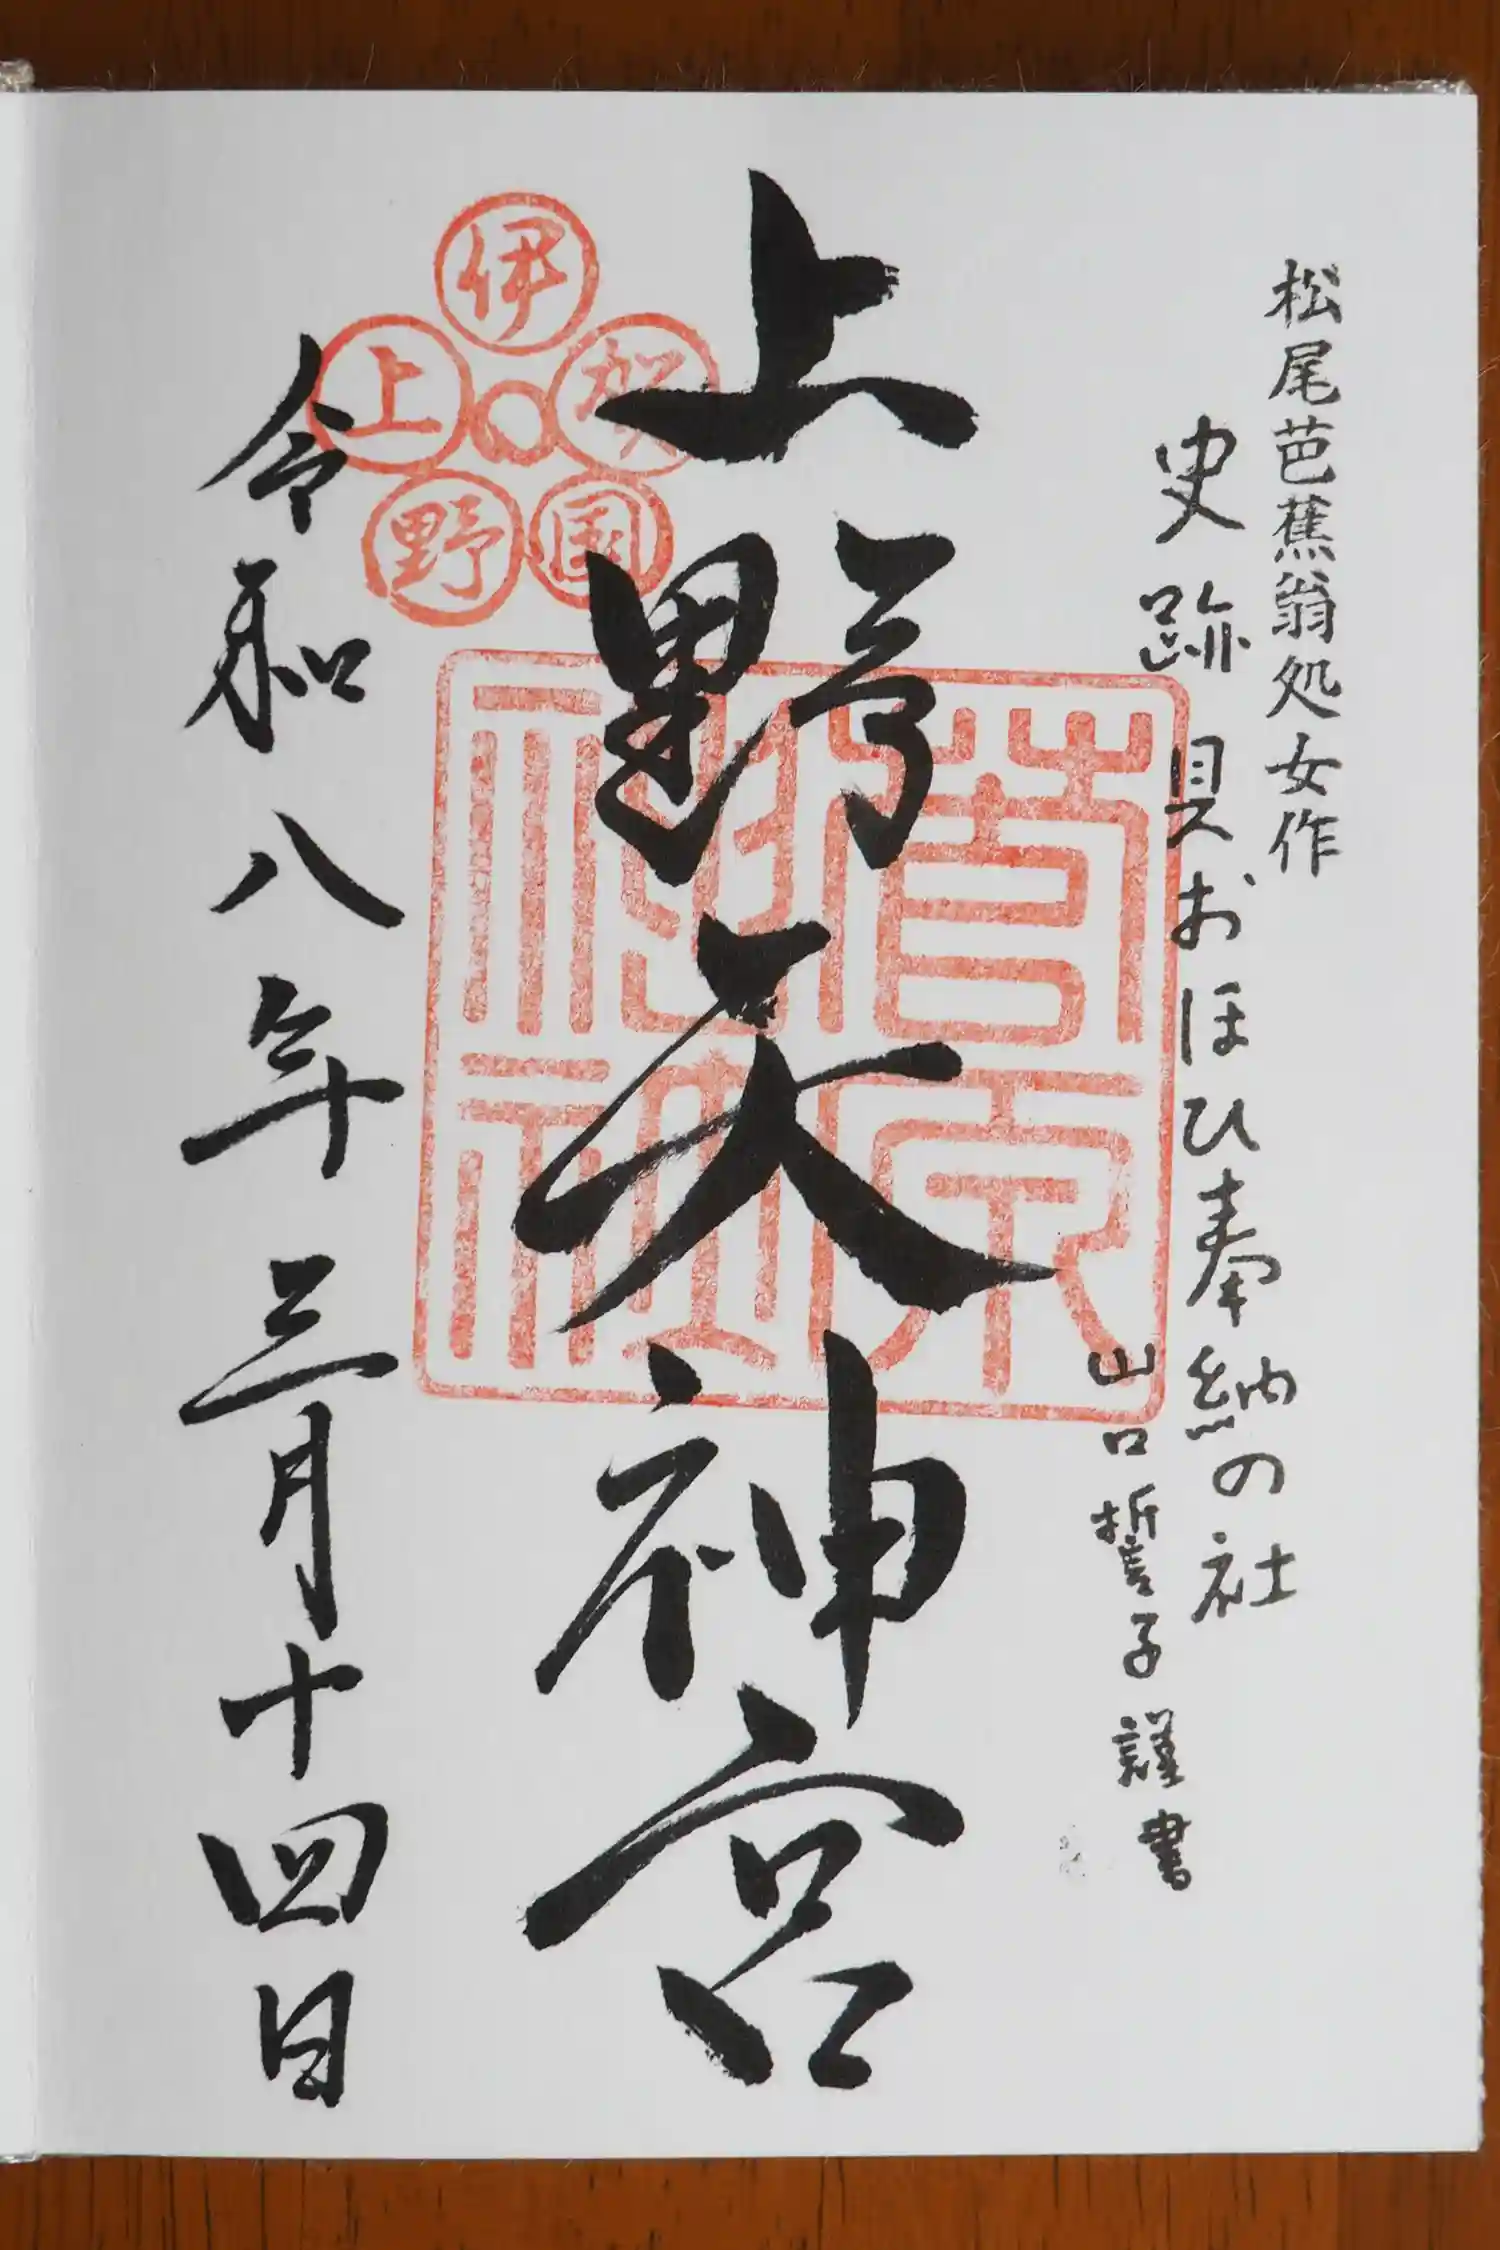 松尾芭蕉翁処女作
史跡 貝おほひ奉納の社
山口誓子謹書
上野天神宮
菅原神社
伊賀國上野
令和八年三月十四日